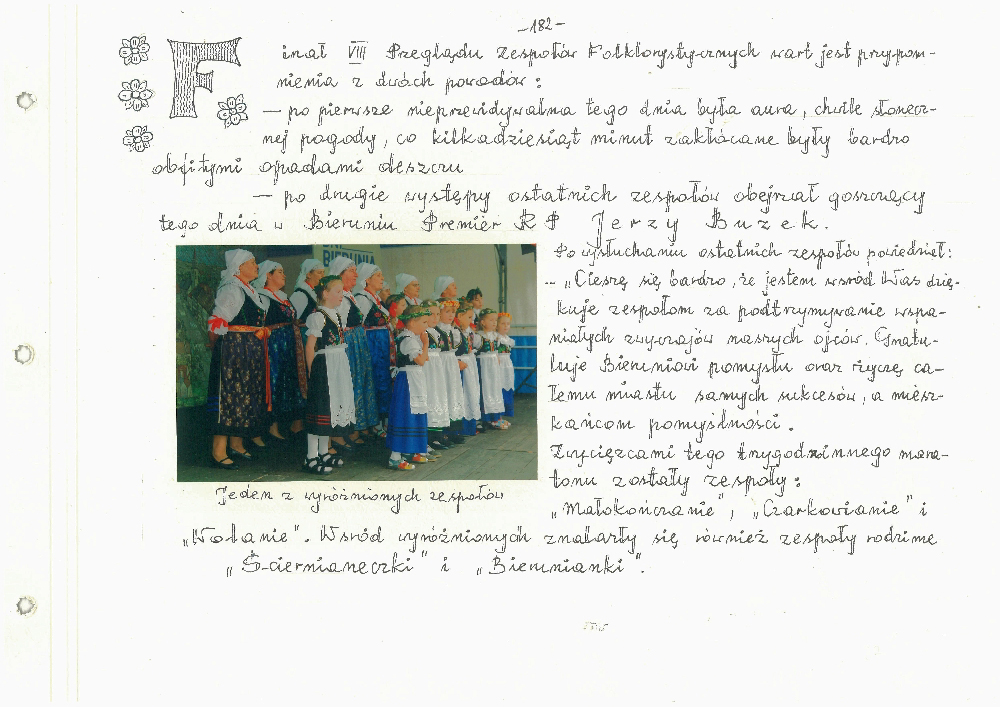 -182-
Finał VIII Przeglądu Zespołów Folklorystycznych wart jest przypom-
nienia z dwóch powodów:
- po pierwsze nieprzewidywalna tego dnia była aura, chwile słonecz-
nej pogody, co kilkadziesiąt minut zakłócane były bardzo
obfitymi opadami deszczu
- po drugie występy ostatnich zespołów obejrzał goszczący
tego dnia w Bieruniu Premier RP Jerzy Buzek.
BIERUNIA
Po wysłuchaniu ostatnich zespołów powiedział:
- „Cieszę się bardzo, że jestem wśród Was dzię-
kuje zespołom za podtrzymywanie wspa-
niałych zwyczajów naszych ojców. Gratu-
luje Bieruniowi pomysłu oraz życzę ca-
łemu miastu samych sukcesów, a miesz-
kańcom pomyślności.
Zwycięzcami tego trzygodzinnego mara-
tonu zostały zespoły:
Jeden z wyróżnionych zespołów
„Małokończanie", „Czarkowianie" i
„Wolanie". Wsród wyróżnionych znalazły się również zespoły rodzime
„Ściernianeczki" i „Bierunianki".